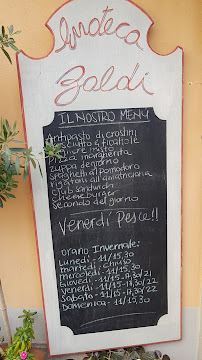 Enoteca
Zaldi
IL NOSTRO MENÙ
Antipasto di crostini
Prosciutto e fagiole
tagliere misto
pizza margherita
zuppa del giorno
spaghetti al pomodoro
rigatoni all'amatriciana
club sandwich
cheeseburger
secondo del giorno
Venerdì Pesce!!
orario Invernale:
Lunedì - 11/15,30
martedì - chiuso
mercoledì - 11/15,30
Giovedì - 11/15-17,30/21
venerdì - 11/15-17,30/22
Sabato - 11/15-17,30/22
Domenica - 11/15,30